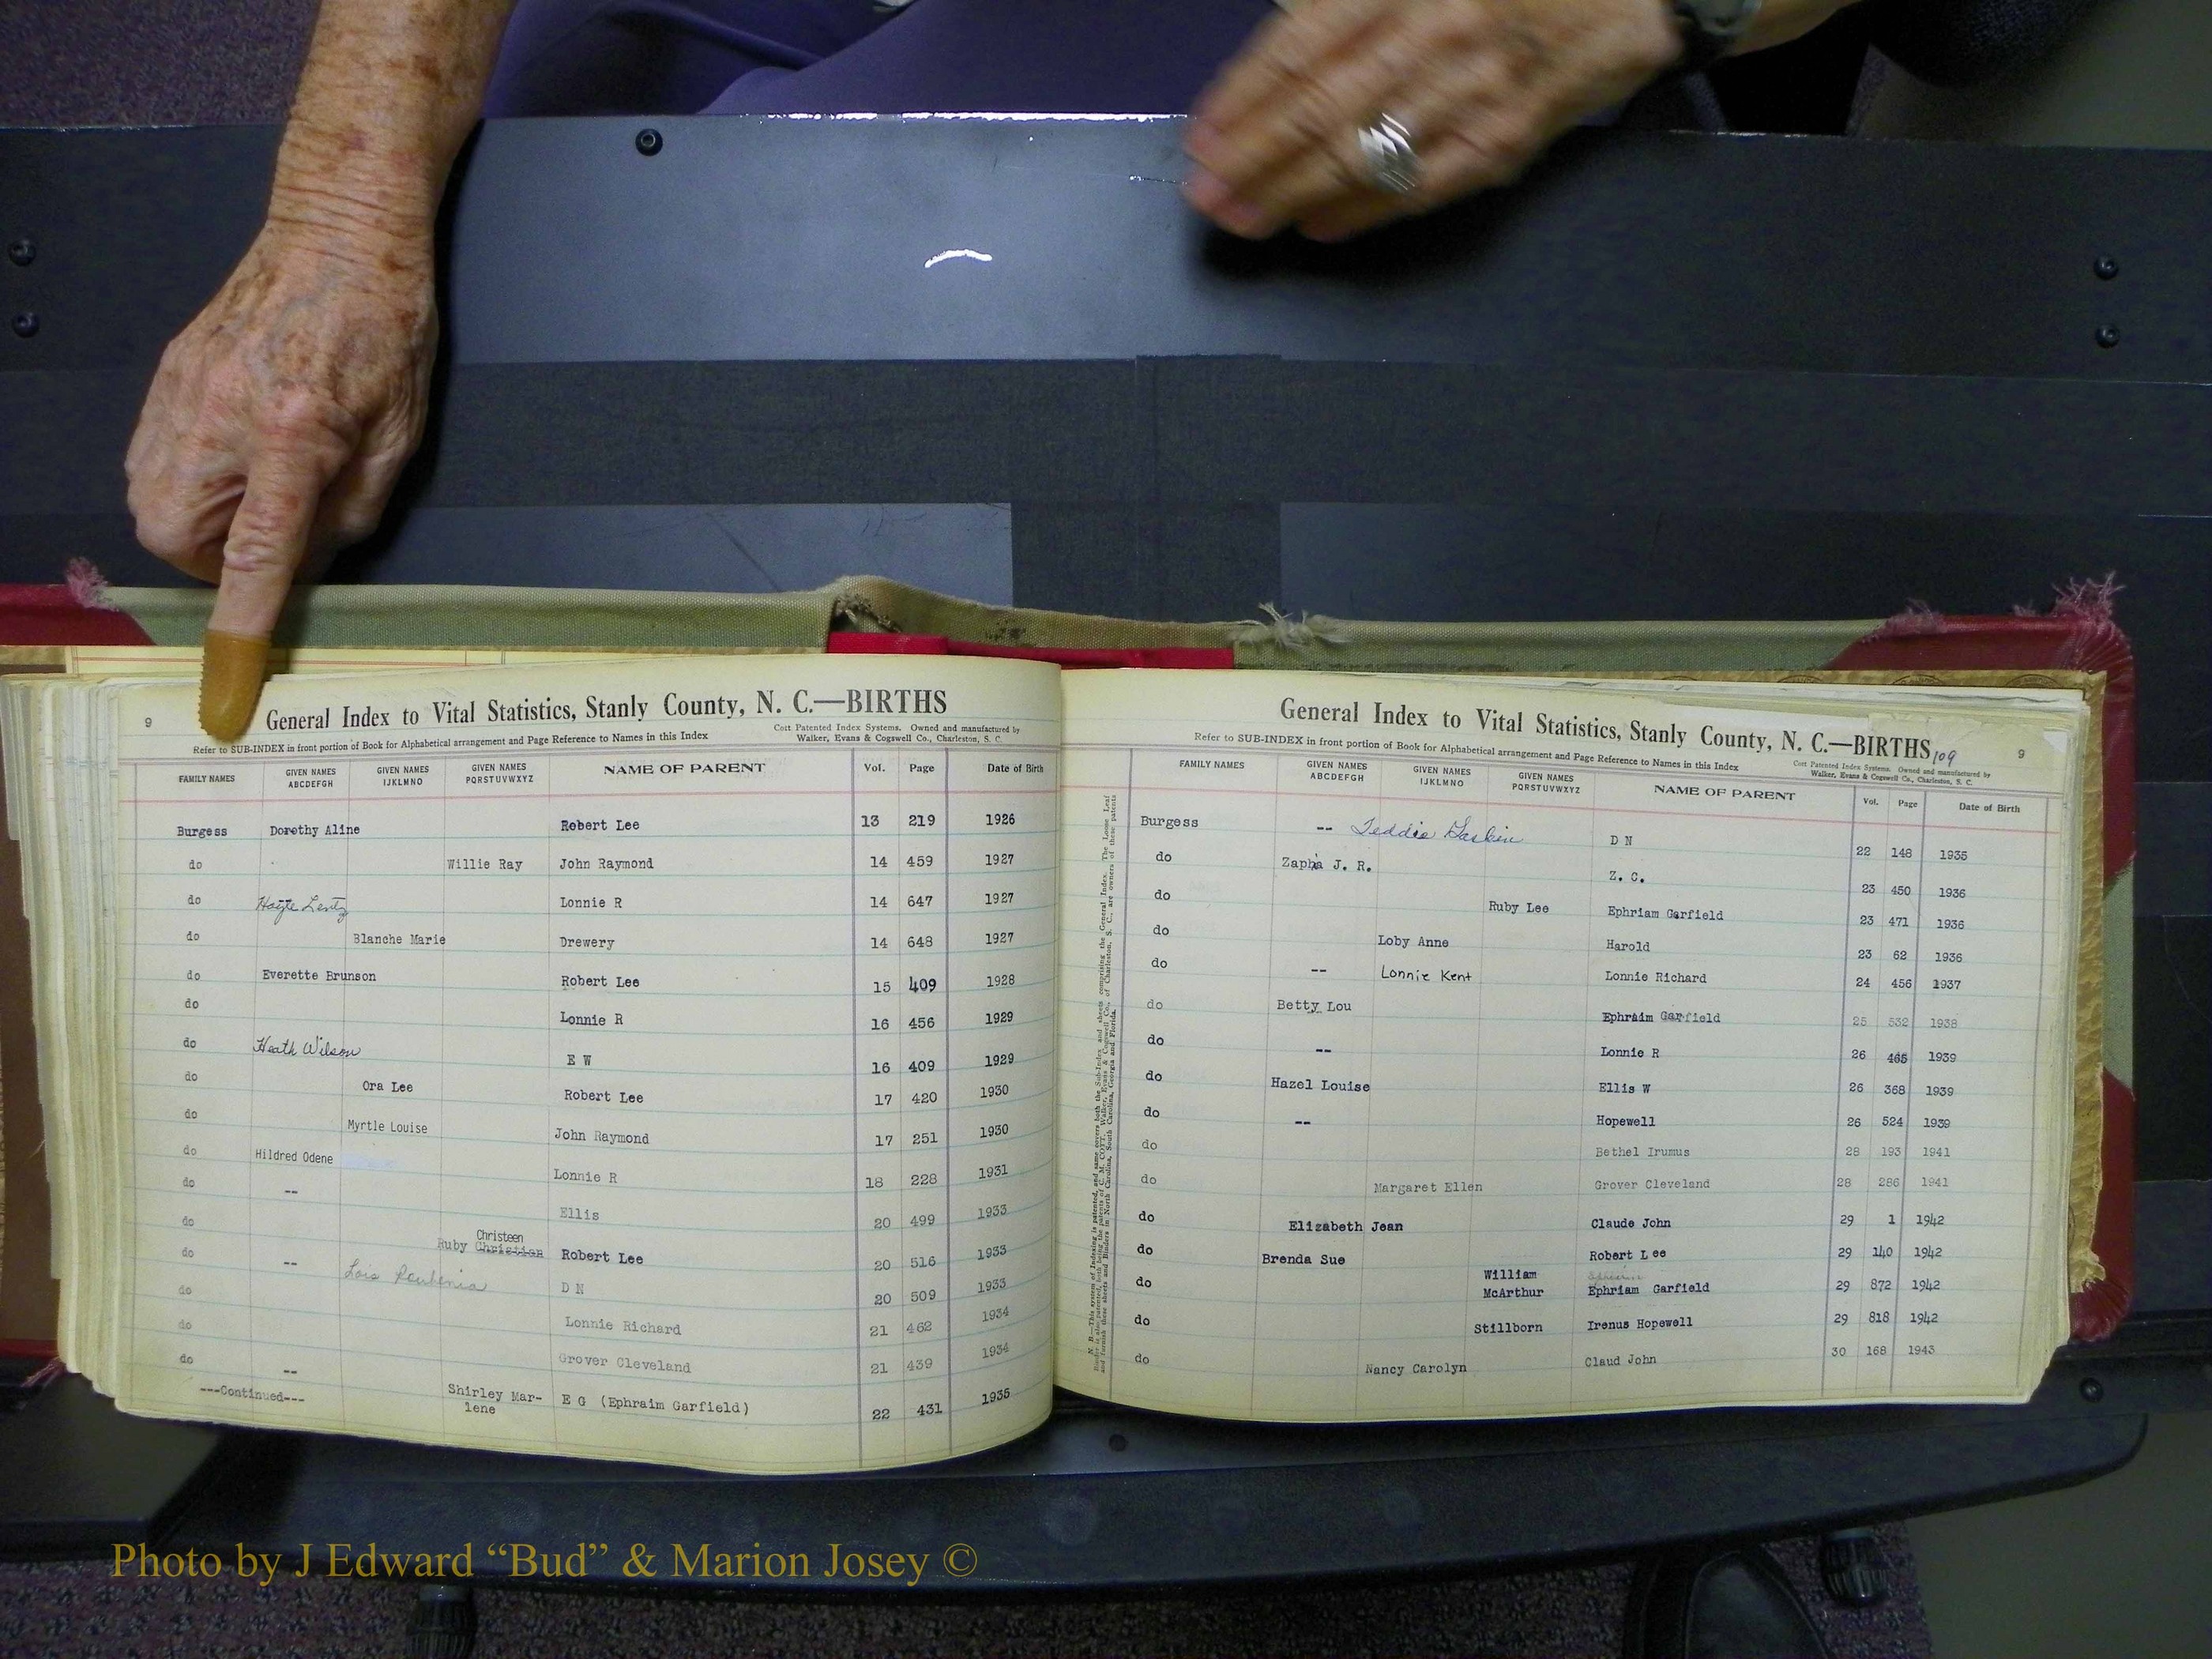 9
General Index to Vital Statistics, Stanly County, N. C.—BIRTHS
Refer to SUB-INDEX in front portion of Book for Alphabetical arrangement and Page Reference to Names in this Index
Cott Patented Index Systems. Owned and manufactured by
Walker, Evans & Cogswell Co., Charleston, S. C.
FAMILY NAMES GIVEN NAMES ABCDEFGH GIVEN NAMES IJKLMNO GIVEN NAMES PQRSTUVWXYZ NAME OF PARENT Vol. Page Date of Birth
Burgess Dorothy Aline Robert Lee 13 219 1926
do Willie Ray John Raymond 14 459 1927
do Hoyte Lentz Lonnie R 14 647 1927
do Blanche Marie Drewery 14 648 1927
do Everette Brunson Robert Lee 15 409 1928
do Lonnie R 16 456 1929
do Heath Wilson E W 16 409 1929
do Ora Lee Robert Lee 17 420 1930
do Myrtle Louise John Raymond 17 251 1930
do Hildred Odene Lonnie R 18 228 1931
do -- Ellis 20 499 1933
do Ruby Christian Christeen Robert Lee 20 516 1933
do -- Lois D N 20 509 1933
do Lonnie Richard 21 462 1934
do Grover Cleveland 21 439 1934
do -- Shirley Mar-
lene E G (Ephraim Garfield) 22 431 1935
---Continued---
General Index to Vital Statistics, Stanly County, N. C.—BIRTHS 109
9
Refer to SUB-INDEX in front portion of Book for Alphabetical arrangement and Page Reference to Names in this Index
Cott Patented Index Systems. Owned and manufactured by
Walker, Evans & Cogswell Co., Charleston, S. C.
FAMILY NAMES GIVEN NAMES ABCDEFGH GIVEN NAMES IJKLMNO GIVEN NAMES PQRSTUVWXYZ NAME OF PARENT Vol. Page Date of Birth
Burgess -- Teddie D N 22 148 1935
do Zapha J. R. Z. C. 23 450 1936
do Ruby Lee Ephriam Garfield 23 471 1936
do Loby Anne Harold 23 62 1936
do -- Lonnie Kent Lonnie Richard 24 456 1937
do Betty Lou Ephraim Garfield 25 532 1938
do -- Lonnie R 26 465 1939
do Hazel Louise Ellis W 26 368 1939
do -- Hopewell 26 524 1939
do Bethel Irumus 28 193 1941
do Margaret Ellen Grover Cleveland 28 286 1941
do Elizabeth Jean Claude John 29 1 1942
do Brenda Sue Robert Lee 29 140 1942
do William
McArthur Ephriam Garfield 29 872 1942
do Stillborn Irenus Hopewell 29 818 1942
do Nancy Carolyn Claud John 30 168 1943
Photo by J Edward “Bud” & Marion Josey ©